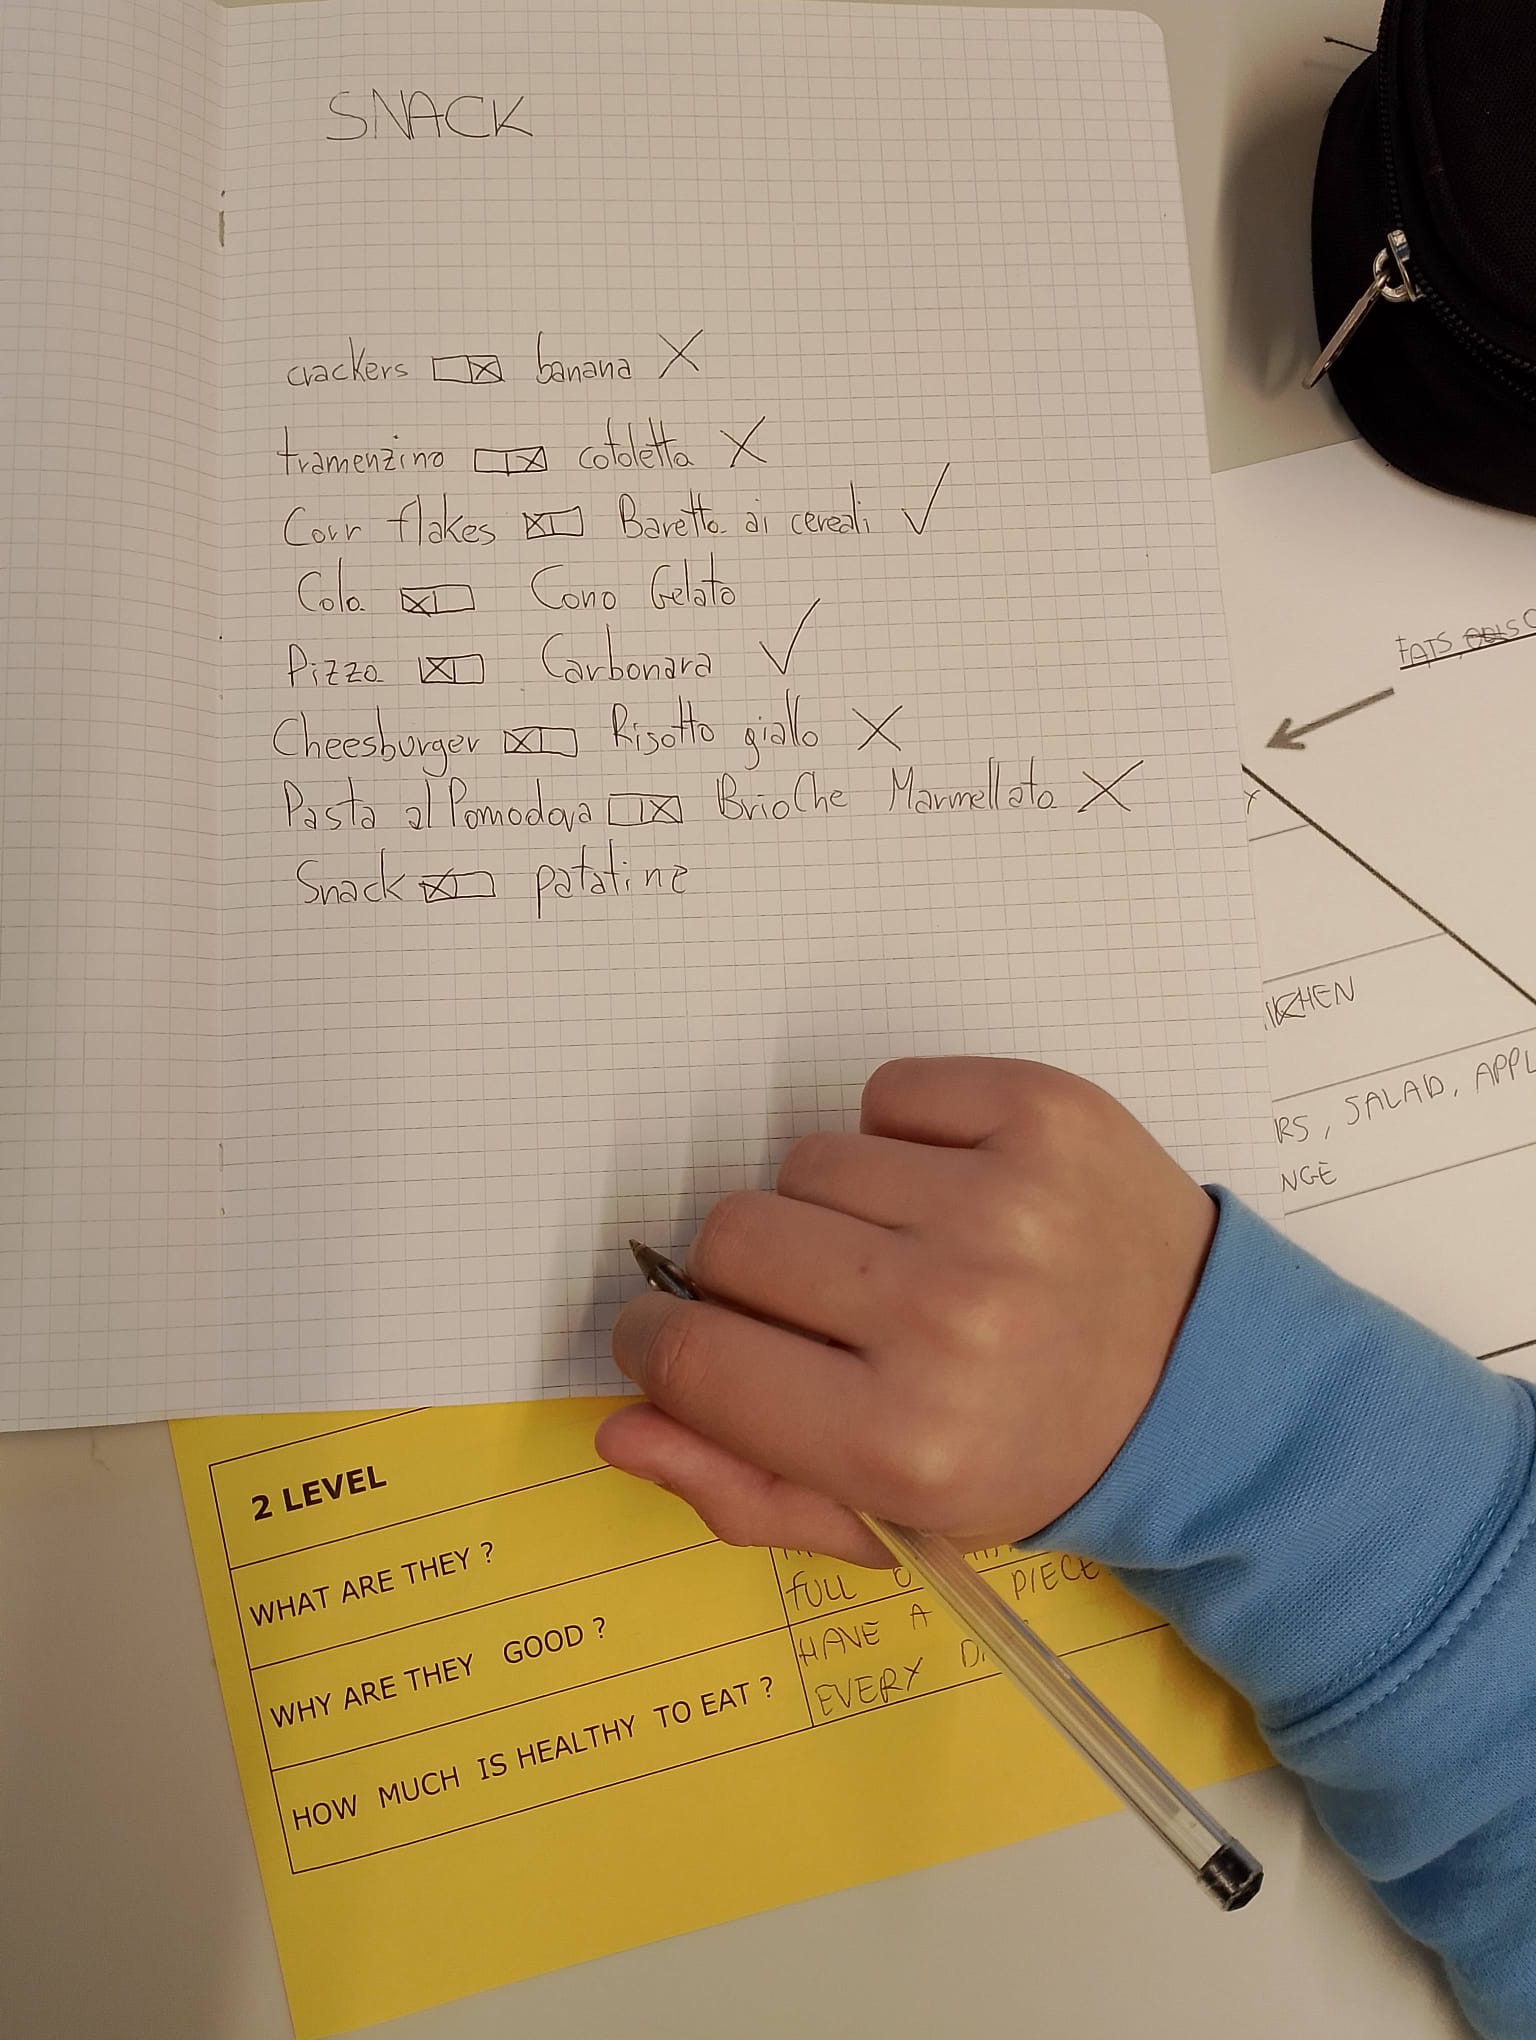 SNACK
crackers banana X
tramenzino cotoletta X
Corr flakes Baretta ai cereali ✓
Cola Cono Gelato
Pizza Carbonara ✓
Cheesburger Risotto giallo X
Pasta al Pomodoro Brioche Marmellata X
Snack patatine
FATS,
KHEN
RS, SALAD, APPL
NGE
2 LEVEL
WHAT ARE THEY ?
FULL O PIECE
WHY ARE THEY GOOD ?
HAVE A
EVERY DA
HOW MUCH IS HEALTHY TO EAT ?